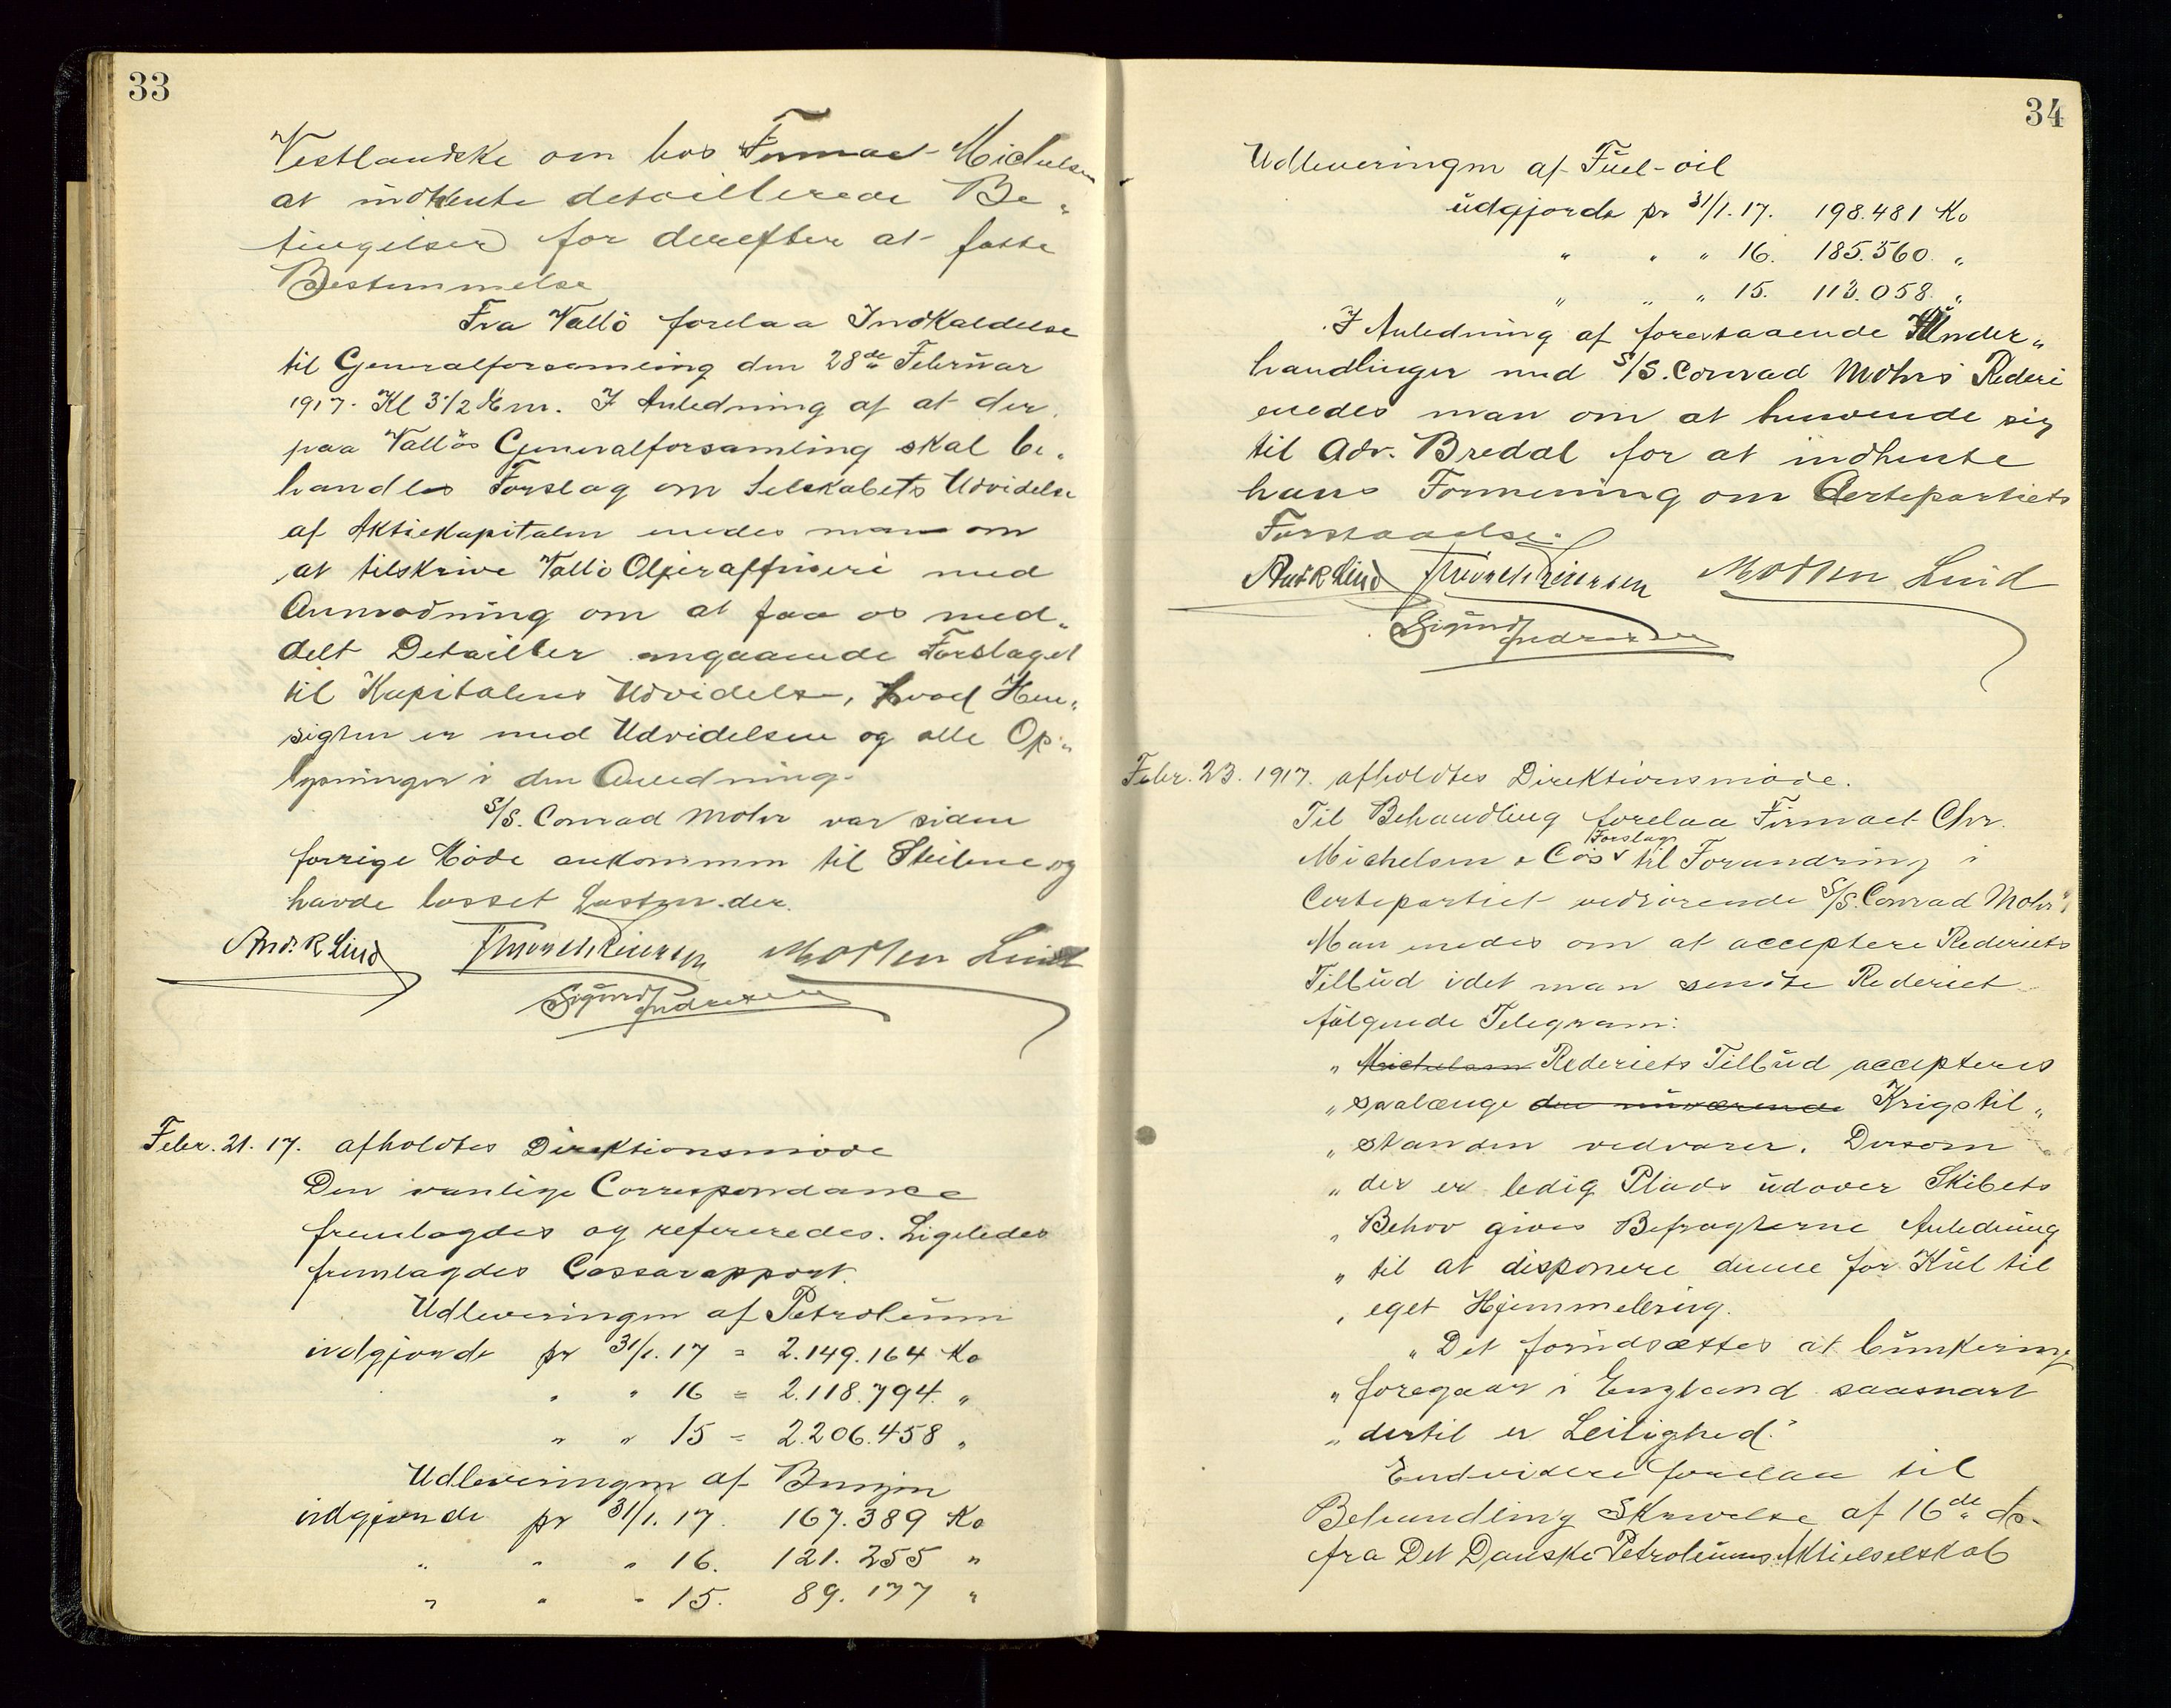 33
Vestlandske om hos Firmaet Michelsen
at indhente detaillerede Be„
tingelser for derefter at fatte
Bestemmelse
Fra Vallö forelaa Indkaldelse
til Generalforsamling den 28de Februar
1917. Kl 3 1/2 Em. I Anledning af at der
paa Vallös Generalforsamling skal be„
handles Forslag om Selskabets Udvidelse
af Aktiekapitalen enedes man om
at tilskrive Vallö Oljeraffineri med
Anmodning om at faa os med„
delt Detailler angaaende Forslaget
til Kapitalens Udvidelse, hvad Hen„
sigten er med Udvidelsen og alle Op„
lysninger i den Anledning.
S/S. Conrad Mohr var siden
forrige Möde ankommen til Steilene og
havde losset Lasten der.
And. R Lind Thorvald Morten Lind
Sigurd Andresen
Febr. 21. 17. afholdtes Direktionsmöde
Den vanlige Correspondance
fremlagdes og refereredes. Ligeledes
fremlagdes Cassarapport.
Udleveringen af Petroleum
udgjorde pr 31/1. 17 = 2.149.164 Ko
" " 16 = 2.118.794 "
" " 15 = 2.206.458 "
Udleveringen af Benzin
udgjorde pr 31/1. 17. 167.389 Ko
" " " 16. 121.255 "
" " " 15. 89.177 "
34
Udleveringen af Fuel-oil
udgjorde pr 31/1. 17. 198.481 Ko
" " " 16. 185.560 "
" " " 15. 113.058 "
I Anledning af forestaaende Under„
handlinger med S/S. Conrad Mohrs Rederi
enedes man om at henvende sig
til Adv. Bredal for at indhente
hans Formening om Certepartiets
Forstaaelse.
And R Lind Morten Lind
Sigurd Andresen
Febr. 23. 1917. afholdtes Direktionsmöde.
Til Behandling forelaa Firmaet Chr.
Michelsen & Co's Forslag til Forandring i
Certepartiet vedrörende S/S. Conrad Mohr".
Man enedes om at acceptere Rederiets
Tilbud idet man sendte Rederiet
fölgende Telegram:
" Michelsen Rederiets Tilbud accepteres
" saalænge den nuværende Krigstil„
" standen vedvarer. Dersom
" der er ledig Plads udover Skibets
" Behov gives Befragterne Anledning
" til at disponere denne for Kul til
" eget Hjemmebring.
" Det forudsættes at bunkering
" foregaar i England saasnart
" dertil er Leilighed."
Endvidere forelaa til
Behandling Skrivelse af 16de ds.
fra Det Danske Petroleums Aktieselskab